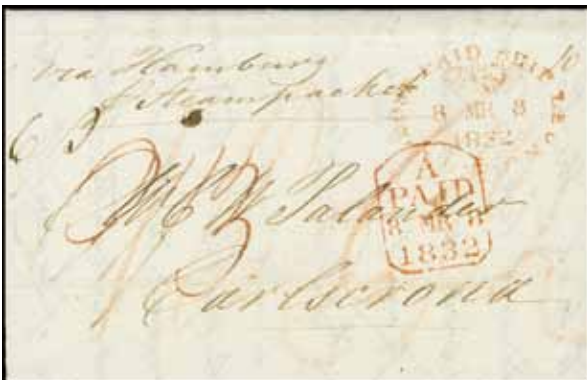 via Hamburg
p Steampacket
PAID SHIP LE
8 MR 8
1832
A
PAID
8 MR 8
1832
Mr C W Palander
Carlscrona